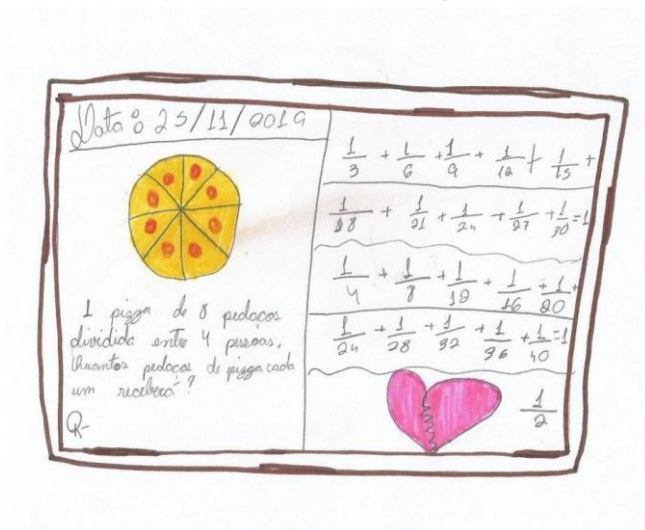 Data: 25/11/2019
1 pizza de 8 pedaços
dividida entre 4 pessoas.
Quantos pedaços de pizza cada
um receberá?
R-
1/3 + 1/6 + 1/9 + 1/12 + 1/15 +
1/18 + 1/21 + 1/24 + 1/27 + 1/30 = 1
1/4 + 1/8 + 1/12 + 1/16 + 1/20 +
1/24 + 1/28 + 1/32 + 1/36 + 1/40 = 1
1/2